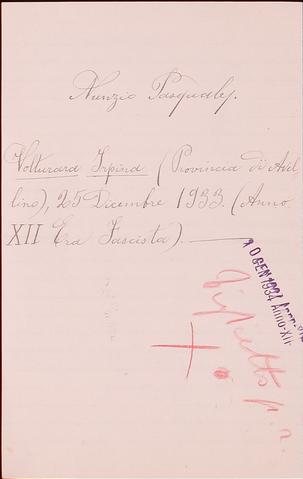 Nunzio Pasquale.
Volturara Irpina (Provincia di Avel
lino), 25 Dicembre 1933. (Anno
XII Era Fascista).
10 GEN 1934 ANNO-XII
Biglietto p. r.